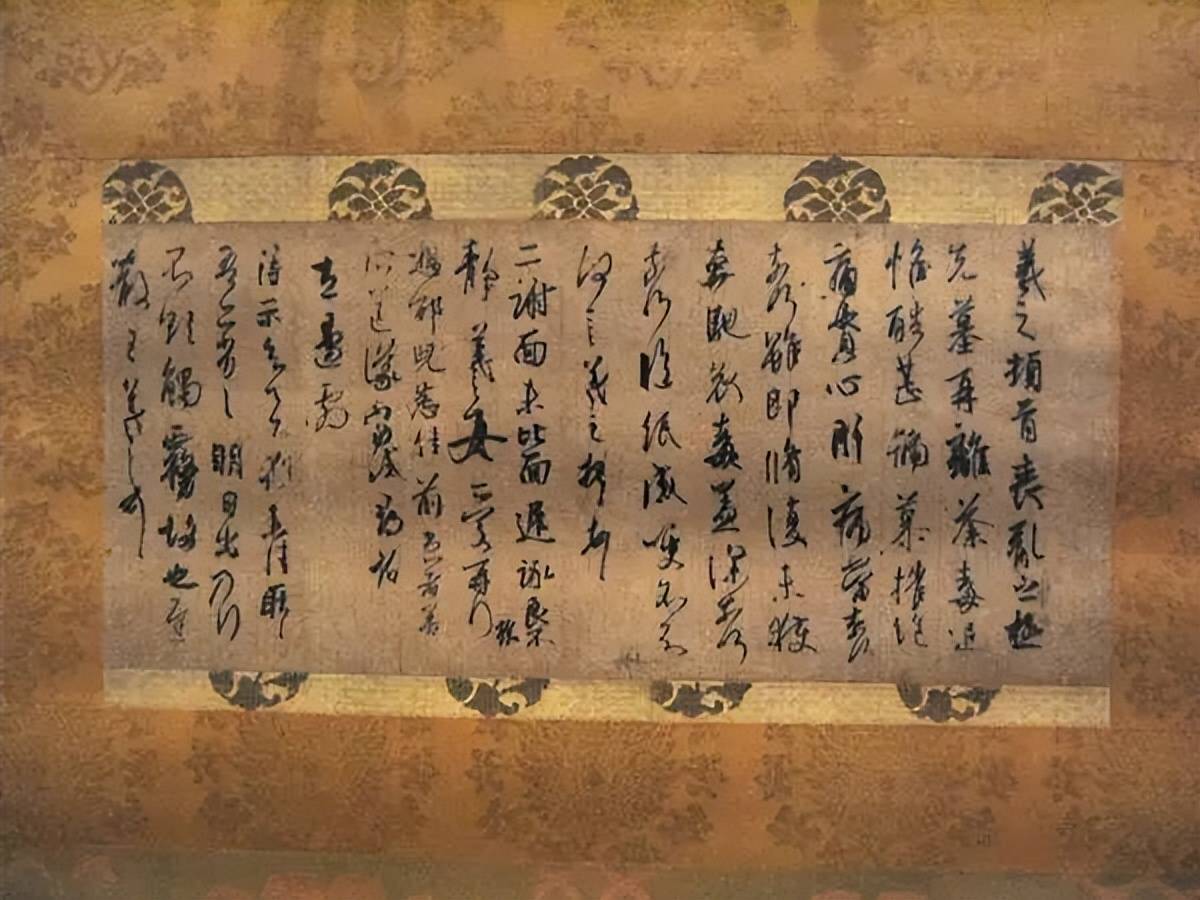 羲之頓首喪亂之極
先墓再離荼毒追
惟酷甚號慕摧絶
痛貫心肝痛當奈何
奈何雖即脩復未獲
奔馳哀毒益深奈何
奈何臨紙感哽不知
何言羲之頓首頓首
二謝面未比面遲詠良
靜羲之女愛再拜
想邪兒悉佳前患者善
所送議當
左邊劇
得示知足下猶未佳耿耿
吾亦劣劣明日出乃行
不欲觸霧故也遲
散王羲之頓首